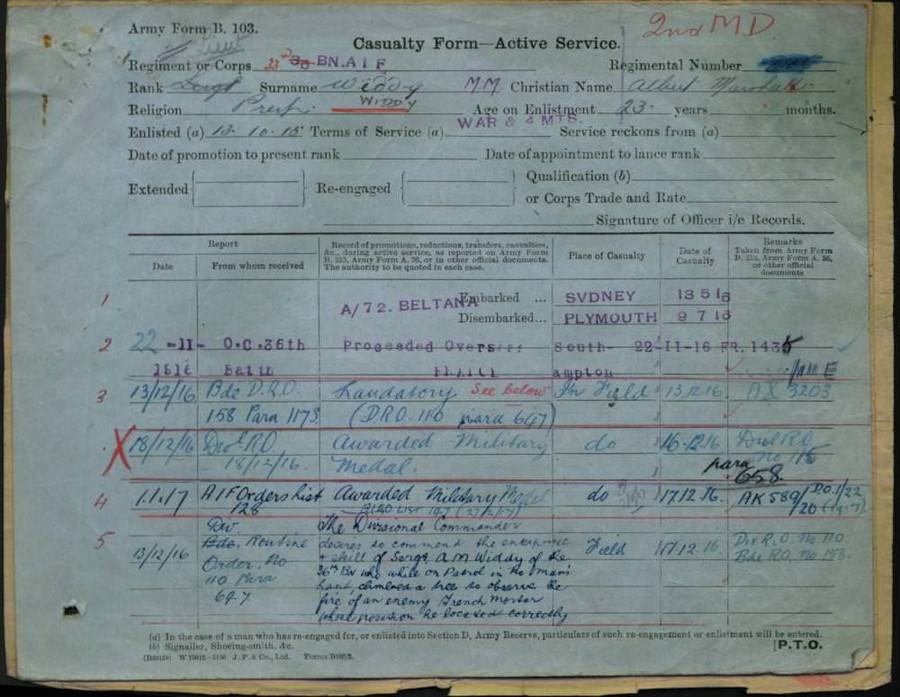 Army Form B. 103.
2nd MD
Lieut
Casualty Form—Active Service.
Regiment or Corps BN. A I F Regimental Number
Rank Sergt Surname Widdy MM Christian Name Albert
Religion WIDDY Age on Enlistment 23 years months.
Enlisted (a) 13. 10. 15 Terms of Service (a) WAR & 4 MTS. Service reckons from (a)
Date of promotion to present rank Date of appointment to lance rank
Extended Re-engaged Qualification (b)
or Corps Trade and Rate
Signature of Officer i/c Records.
Report
Date From whom received
Record of promotions, reductions, transfers, casualties,
&c., during active service, as reported on Army Form
B. 213, Army Form A. 36, or in other official documents.
The authority to be quoted in each case.
Place of Casualty
Date of
Casualty
Remarks
Taken from Army Form
B. 213, Army Form A. 36,
or other official
documents
1 A/72. BELTANA Embarked ... SYDNEY 13 5 16
Disembarked... PLYMOUTH 9 7 16
2 22 -11- O.C. 36th Proceeded Overseas South- 22-11-16 FR.
1916 Batln FRANCE ampton
3 13/12/16 Bde D.R.O Laudatory See below In Field 13.12.16 AX 3203
158 Para 1173 (D.R.O. 110 para 647)
X 18/12/16 Divl R.O. Awarded Military do 16-12-16 Divl R.O.
18/12/16. Medal. no 115
para
658
4 1.1.17 AIF Orders List Awarded Military Medal do 17.12.16. AK 589/
128
5 13/12/16 Div
Bde. Routine
Order. No
110 Para
647
The Divisional Commander
desires to commend the enterprise
& skill of Sergt A M Widdy of the
36th Bn who while on Patrol in No man's
land, climbed a tree to observe the
fire of an enemy Trench Mortar
whose position he located correctly
Field 17.12.16 Div R.O. No 110
Bde R.O. No 158.
(a) In the case of a man who has re-engaged for, or enlisted into Section D, Army Reserve, particulars of such re-engagement or enlistment will be entered.
(b) Signaller, Shoeing-smith, &c.
[P.T.O.
J. P. & Co., Ltd.